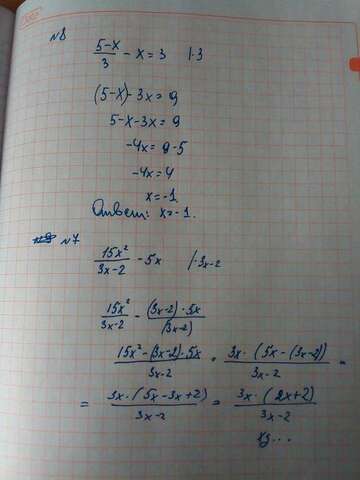 №8
(5-x)/3 - x = 3 |·3
(5-x)-3x=9
5-x-3x=9
-4x=9-5
-4x=4
x=-1
Ответ: x=-1.
№7
15x²/(3x-2) - 5x |·3x-2
15x²/(3x-2) - (3x-2)·5x/(3x-2)
(15x²-(3x-2)·5x)/(3x-2) = 3x·(5x-(3x-2))/(3x-2) =
= 3x·(5x-3x+2)/(3x-2) = 3x·(2x+2)/(3x-2)